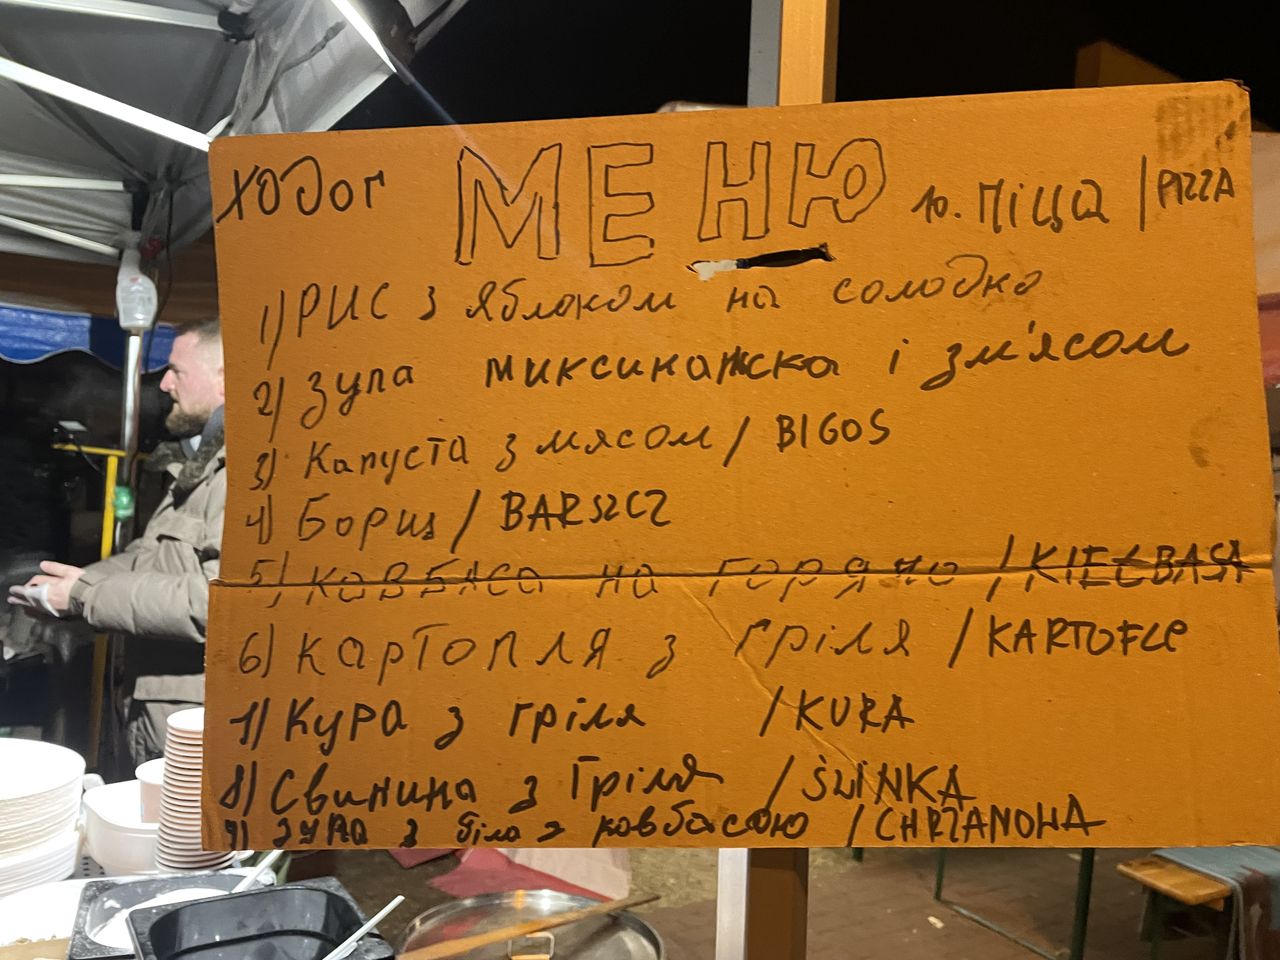 ХОДОГ
МЕНЮ
10. ПІЦЦА | PIZZA
1) РИС з яблоком на солодко
2) Зупа миксиканжска і зм'ясом
3) Капуста з мясом / BIGOS
4) Борщ / BARSZCZ
5) КОВБАСА на горячо / KIEŁBASA
6) Картопля з гріля / KARTOFLE
7) Кура з гріля / KURA
8) Свинина з Гріля / ŚWINKA
9) ЗУПА з біла з ковбасою / CHRZANOWA